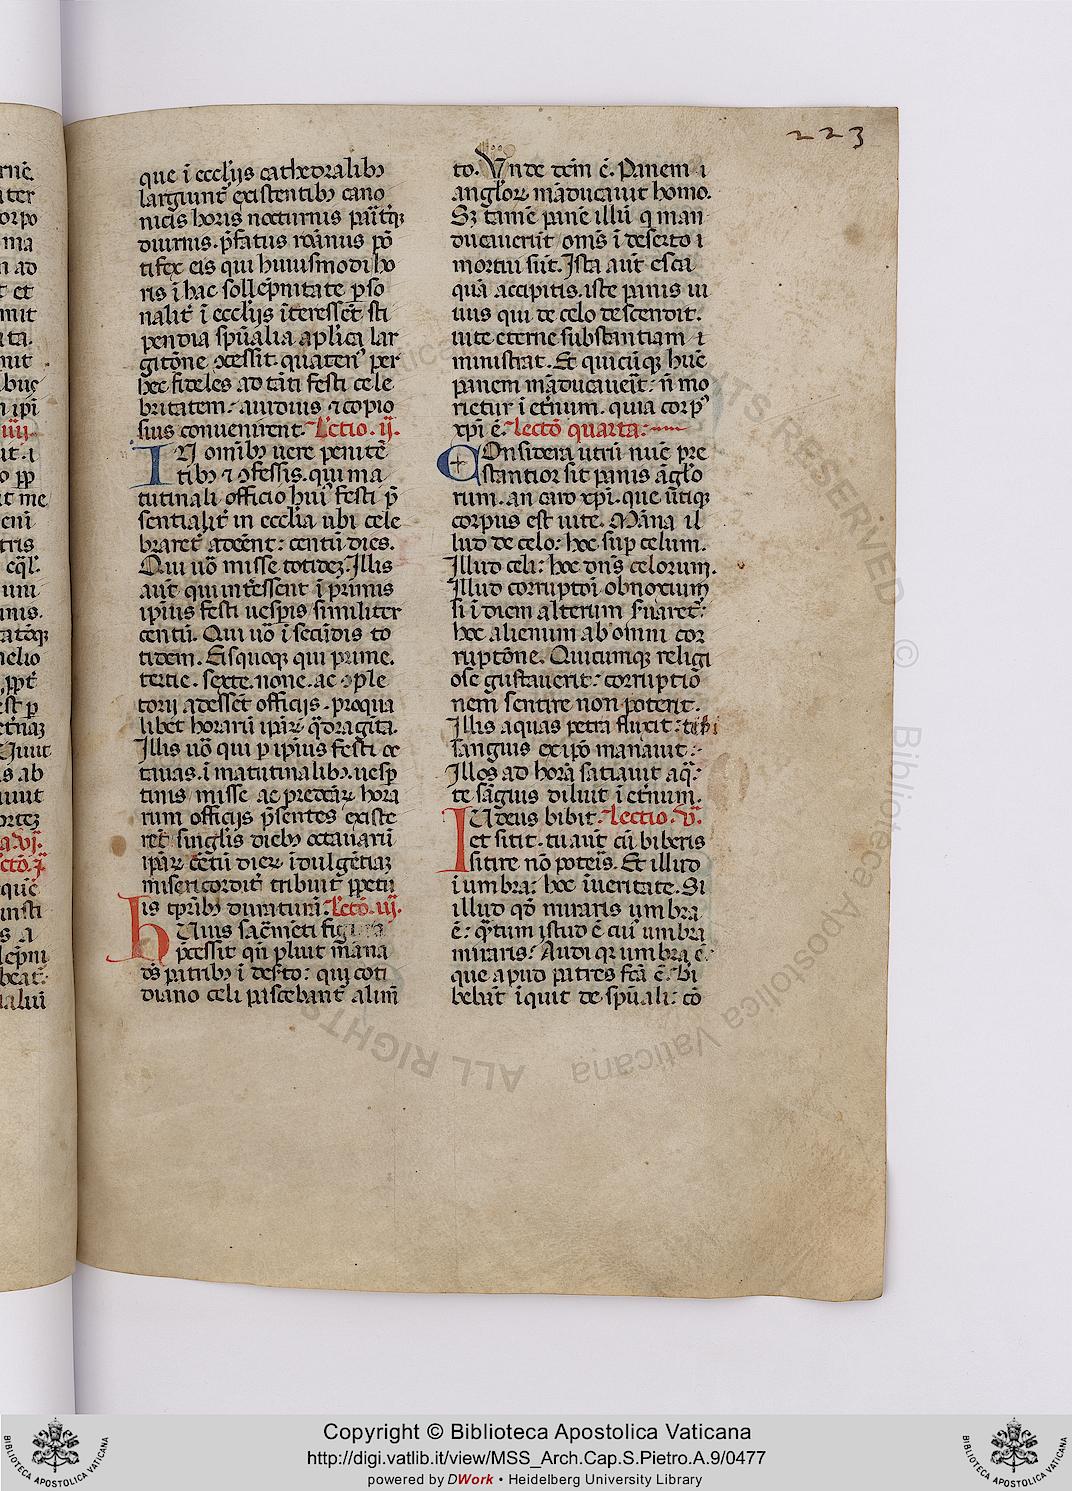 223
que ĩ ecclĩjs cathedralibꝫ
largiunt᷒ existentibꝫ cano
nicis horis nocturnis parit᷒qꝫ
diurnis. p̃fatus romãnus põ
tifex eis qui huiusmodi ho
ris ĩ hac sollep̃nitate p̱so
nalit᷒ ĩ ecclĩjs ĩteressẽt sti
pendia sp̃ualia ap̃lica lar
gitõne ꝯcessit. quaten᷒ per
hec fideles ad tãti festi cele
britatem: auidius ⁊ copio
sius convenirent. Lectio. ij.
IN omĩbꝫ vere penitẽ
tibꝫ ⁊ ꝯfessis. qui ma
tutinali officio hui᷒ festi p̃
sentialit᷒ in ecclĩa ubi cele
braret᷒ adeẽnt: centũ dies.
Qui ũo misse totidez. Illis
aũt qui intẽssent ĩ primis
ipĩus festi uesp̱is similiter
centũ. Qui ũo ĩ secũdis to
tidem. Eisquoqꝫ qui prime.
tertie. sexte. none. ac ꝯple
torij adessẽt officijs. pro qua
libet horarũ ipãꝝ q̃dragĩta.
Illis ũo qui p̱ ipĩus festi oc
tauas. ĩ matutinalibꝫ. uesp̱
tinis misse ac predcãꝝ hora
rum officijs p̃sentes existe
rẽt singl̃is diebꝫ octauarũ
ipãꝝ cẽtũ dieꝝ ĩdulgẽtiaz
misericordit᷒ tribuit ꝑpetu
is tp̃ribꝫ duraturã. Lectõ. iij.
HUius sac̃mẽti figura
p̃cessit qñ pluit mãna
dẽs patribꝫ ĩ des̃to: qui coti
diano celi pascebant᷒ alim̃
to. Vnde dc̃m ẽ. Panem
angl̃oꝝ mãducauit homo.
Sꝫ tamẽ panẽ illũ q̃ man
ducauerũt om̃s ĩ deserto
mortui sũt. Ista aũt esca
quã accipitis. iste panis ui
uus qui de celo descendit.
uite eterne substantiam
ministrat. Et quicũqꝫ hũc
panem mãducauerit: ñ mo
rietur ĩ et̃num. quia corp᷒
xp̃i ẽ. Lectõ quarta.
COnsidera utrũ nũc pre
stantior sit panis ãgl̃o
rum. an caro xp̃i. que ũtiqꝫ
corpus est uite. Mãna il
lud de celo: hoc sup̱ celum.
Illud celi: hoc dñs celorum.
Illud corruptõi obnoxium
si ĩ diem alterum s̃uaret᷒:
hoc alienum ab omni cor
ruptõne. Quicumqꝫ religi
ose gustauerit: corruptiõ
nem sentire non poterit.
Illis aquas petra fluxit: tibi
sanguis ex ip̃o manauit:
Illos ad horã satiauit aq̃:
te sãguis diluit ĩ et̃num.
IUdeus bibit. Lectio. v.
et sitit. tu aũt cũ biberis
sitire nõ poteris. Et illud
ĩ umbra: hoc ĩ ueritate. Si
illud qd̃ miraris umbra
ẽ: q̃tum istud ẽ cui᷒ umbrã
miraris: Audi qꝛ umbra ẽ
que apud patres fcã ẽ. Bi
bebãt ĩquit de sp̃uali: cõ
ALL RIGHTS RESERVED © Biblioteca Apostolica Vaticana
Copyright © Biblioteca Apostolica Vaticana
http://digi.vatlib.it/view/MSS_Arch.Cap.S.Pietro.A.9/0477
powered by DWork • Heidelberg University Library
BIBLIOTECA APOSTOLICA VATICANA
BIBLIOTECA APOSTOLICA VATICANA